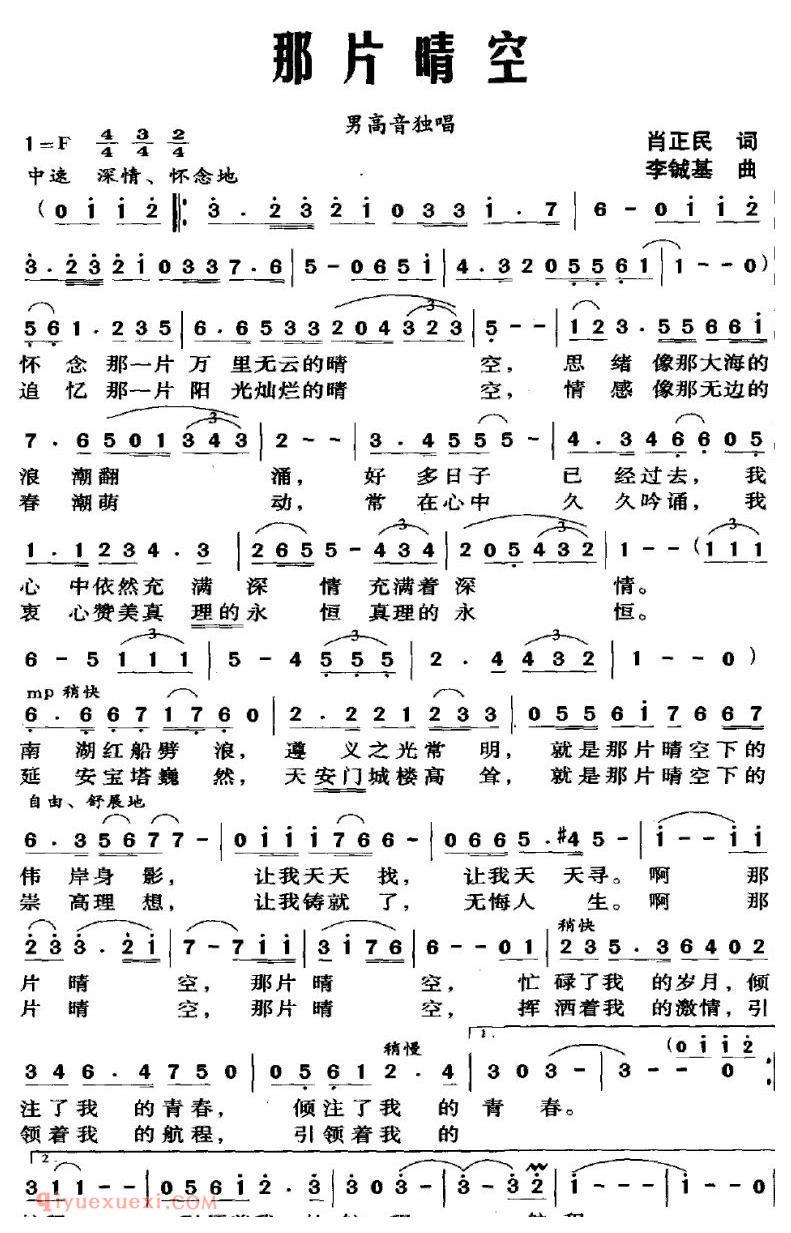 那片晴空
男高音独唱
1=F 4/4 3/4 2/4
肖正民 词
中速 深情、怀念地
李铖基 曲
(0 i i 2 ‖: 3 . 2 3 2 i 0 3 3 i . 7 | 6 - 0 i i 2
3 . 2 3 2 i 0 3 3 7 . 6 | 5 - 0 6 5 i | 4 . 3 2 0 5 5 6 1 | 1 - - 0)
5 6 1 . 2 3 5 | 6 . 6 5 3 3 2 0 4 3 2 3 | 5 - - | 1 2 3 . 5 5 6 6 i
怀 念 那一片 万 里无云的晴 空, 思 绪 像那大海的
追 忆 那一片 阳 光灿烂的晴 空, 情 感 像那无边的
7 . 6 5 0 1 3 4 3 | 2 - - | 3 . 4 5 5 5 - | 4 . 3 4 6 6 0 5
浪 潮翻 涌, 好 多日子 已 经过去, 我
春 潮萌 动, 常 在心中 久 久吟诵, 我
1 . 1 2 3 4 . 3 | 2 6 5 5 - 4 3 4 | 2 0 5 4 3 2 | 1 - - (1 1 1
心 中依然充 满 深 情 充满着深 情。
衷 心赞美真 理的永 恒 真理的永 恒。
6 - 5 1 1 1 | 5 - 4 5 5 5 | 2 . 4 4 3 2 | 1 - - 0)
mp 稍快
6 . 6 6 7 1 7 6 0 | 2 . 2 2 1 2 3 3 | 0 5 5 6 i 7 6 6 7
南 湖红船劈 浪, 遵 义之光常 明, 就是那片晴空下的
延 安宝塔巍 然, 天安门城楼高 耸, 就是那片晴空下的
自由、舒展地
6 . 3 5 6 7 7 - | 0 i i i 7 6 6 - | 0 6 6 5 . #4 5 - | i - i i
伟 岸身 影, 让我天天 找, 让我天 天寻。啊 那
崇 高理 想, 让我铸就 了, 无悔人 生。啊 那
稍快
2 3 3 . 2 i | 7 - 7 i i | 3 i 7 6 | 6 - - 0 1 | 2 3 5 . 3 6 4 0 2
片 晴 空, 那片 晴 空, 忙 碌了我 的岁月,倾
片 晴 空, 那片 晴 空, 挥 洒着我 的激情,引
稍慢 1. (0 i i 2
3 4 6 . 4 7 5 0 | 0 5 6 1 2 . 4 | 3 0 3 - | 3 - - 0 :‖
注了我 的青春, 倾注了我 的 青 春。
领着我 的航程, 引领着我 的
2.
3 1 1 - - | 0 5 6 i 2 . 3 | 3 0 3 - | 3 - 3 2 | i - - | i - 0
qiyuexuexi.com